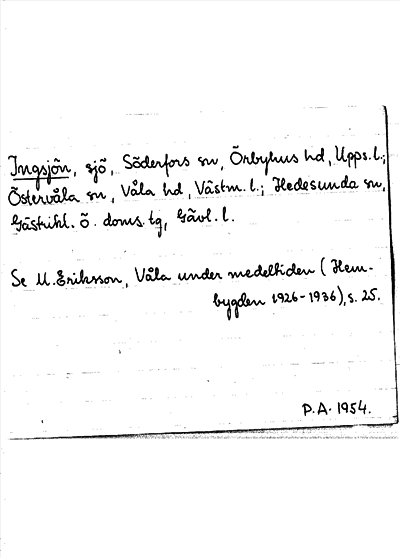 Ingsjön, sjö, Söderfors sn, Örbyhus hd, Upps. l.;
Östervåla sn, Våla hd, Västm. l.; Hedesunda sn,
Gästrikl. ö. doms. tg, Gävl. l.
Se M. Eriksson, Våla under medeltiden (Hem-
bygden 1926-1936), s. 25.
P.A. 1954.